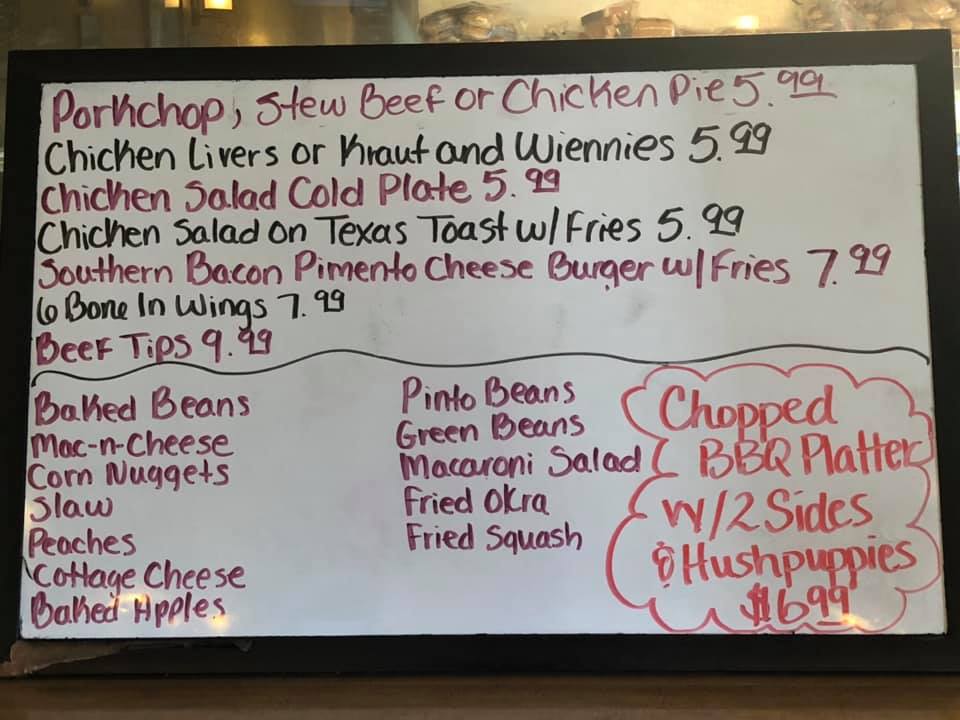 Porkchop, Stew Beef or Chicken Pie 5.99
Chicken Livers or Kraut and Wiennies 5.99
Chicken Salad Cold Plate 5.99
Chicken Salad on Texas Toast w/Fries 5.99
Southern Bacon Pimento Cheese Burger w/Fries 7.99
6 Bone In Wings 7.99
Beef Tips 9.99
Baked Beans
Mac-n-Cheese
Corn Nuggets
Slaw
Peaches
Cottage Cheese
Baked Apples
Pinto Beans
Green Beans
Macaroni Salad
Fried Okra
Fried Squash
Chopped
BBQ Platter
w/2 Sides
& Hushpuppies
$6.99